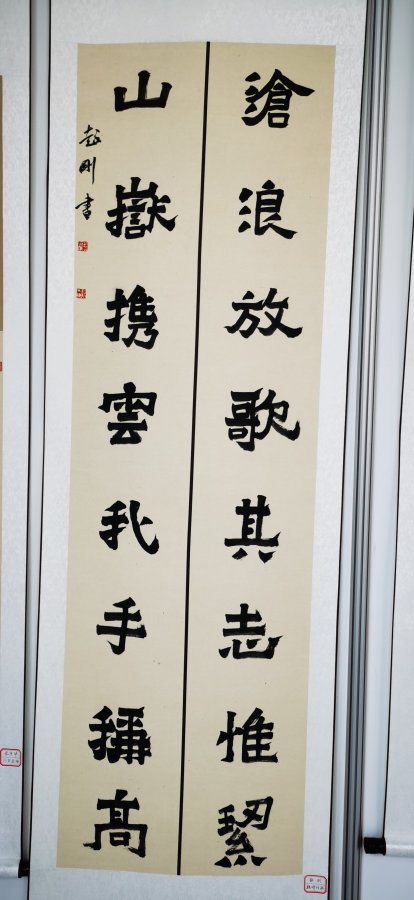 滄浪放歌其志惟絜
山嶽携雲我手稱高
赵刚書